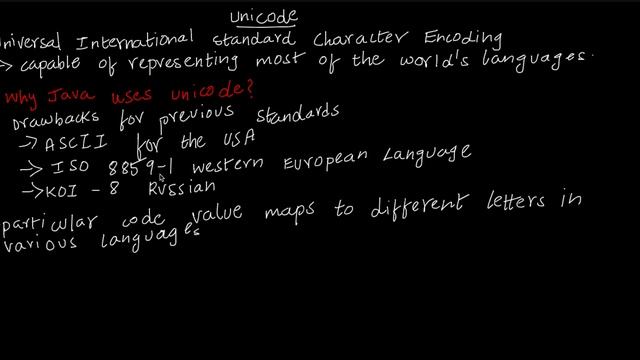 Unicode
niversal International standard Character Encoding
-> capable of representing most of the world's languages.
Why Java uses unicode?
Drawbacks for previous standards
-> ASCII for the USA
-> ISO 8859-1 western European Language
-> KOI - 8 Russian
particular code value maps to different letters in
various languages